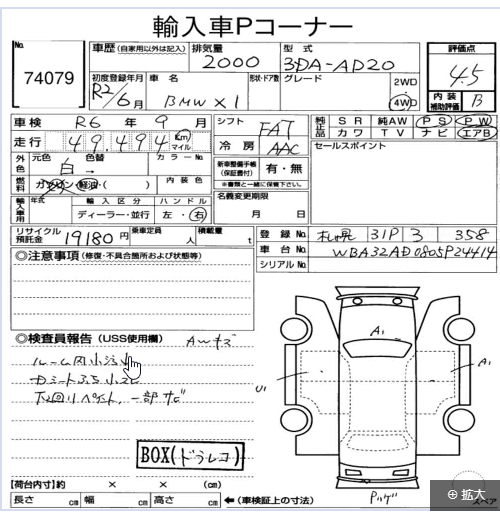 輸入車Pコーナー
No. 74079
車歴 (自家用以外は記入) 排気量 2000 型式 3DA-AD20
評価点 4.5
初度登録年月 R2/6月 車名 BMW X1 形状・ドア数 グレード 2WD 4WD
内装補助評価 B
車検 R6年9月
シフト FAT
純正品 SR 純AW PS PW
カワ TV ナビ エアB
走行 49,494 Km マイル
冷房 AAC
セールスポイント
外色 元色 白 色替 カラーNo.
新車整備手帳 (保証書付) 有・無
※書類と一緒に保管下さい。
燃料 ガソリン・軽油・( ) 内装色
名義変更期限
月 日
輸入車用 年式 輸入区分 ディーラー・並行 ハンドル 左・右
リサイクル預託金 19180円 乗車定員 人 積載量 t
登録No. 札幌 31P 3 358
車台No. WBA32AD0805P24414
シリアルNo.
◎注意事項 (修復・不具合箇所および状態等)
◎検査員報告 (USS使用欄) Aキズ
ルーム内小汚れ
下回りペイント、一部サビ
A1
A1
U1
BOX(ドラレコ)
【荷台内寸】約 × × (cm)
長さ cm 幅 cm 高さ cm ←(車検証上の寸法)
スペア
拡大